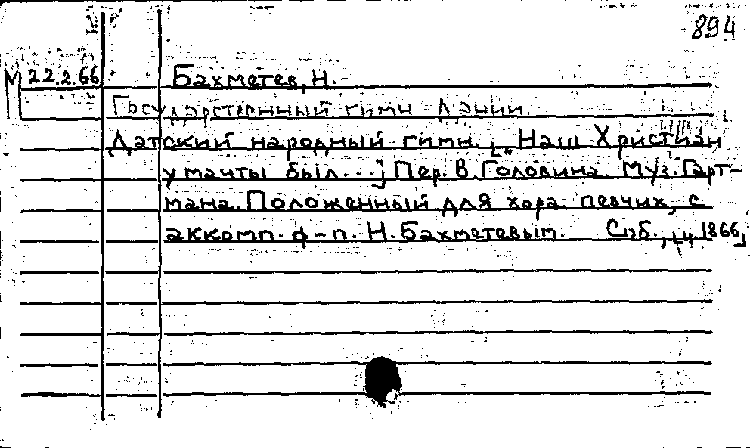 894
М 22.2.66 Бахметев, Н.
Государственный гимн Дании
Датский народный гимн. ["Наш Христиан
у мачты был...] Пер. В. Головина. Муз. Гарт-
мана. Положенный для хора певчих, с
аккомп. ф-п. Н. Бахметевым. Спб., 1866,